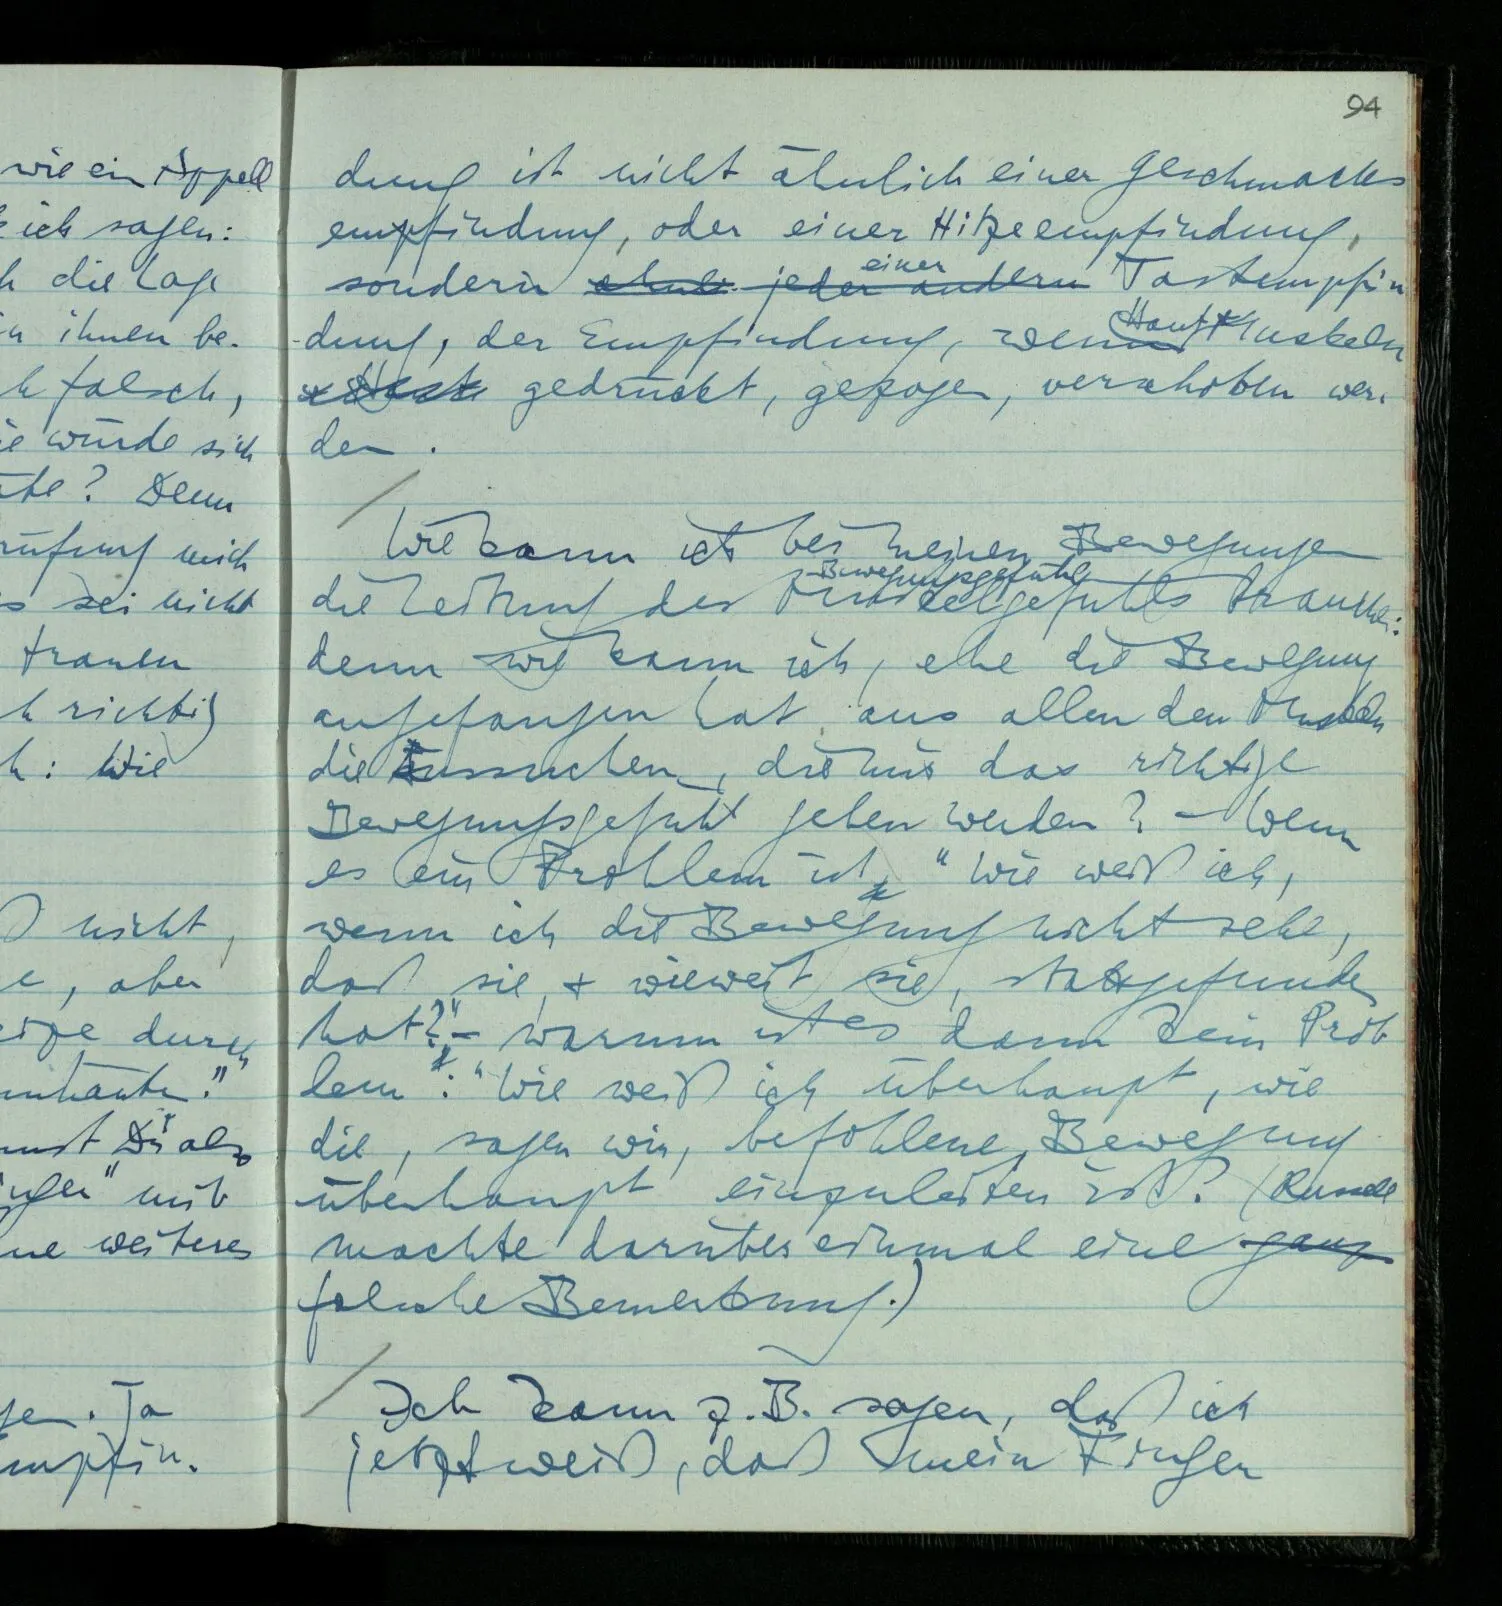 wie ein Appell
ich sagen:
die Lage
in ihnen be-
falsch,
würde sich
Denn
mich
sei nicht
trauen
richtig
Wie
nicht,
aber
durch
Du also
mit
weiteres
Ja
empfin-
94
dung ist nicht ähnlich einer Geschmacks
empfindung, oder einer Hitzeempfindung,
sondern ohne jeder andern einer Tastempfin
dung, der Empfindung, wenn Haut & Muskeln
gedrückt, gezogen, verschoben wer-
den.
Wie kann ich bei meinen Bewegungen
die Leitung des Muskelgefühls Bewegungsgefühls brauchen:
denn wie kann ich, ehe die Bewegung
angefangen hat, aus allen den Muskeln
die aussuchen, die mir das richtige
Bewegungsgefühl geben werden? – Wenn
es ein Problem ist, "Wie weiß ich,
wenn ich die Bewegung nicht sehe,
daß sie, & wieweit sie, stattgefunden
hat?" – warum ist es dann kein Prob
lem: "Wie weiß ich überhaupt, wie
die, sagen wir, befohlene, Bewegung
überhaupt einzuleiten ist? (Russell
machte darüber einmal eine ganz
falsche Bemerkung.)
Ich kann z.B. sagen, daß ich
jetzt weiß, daß mein Finger